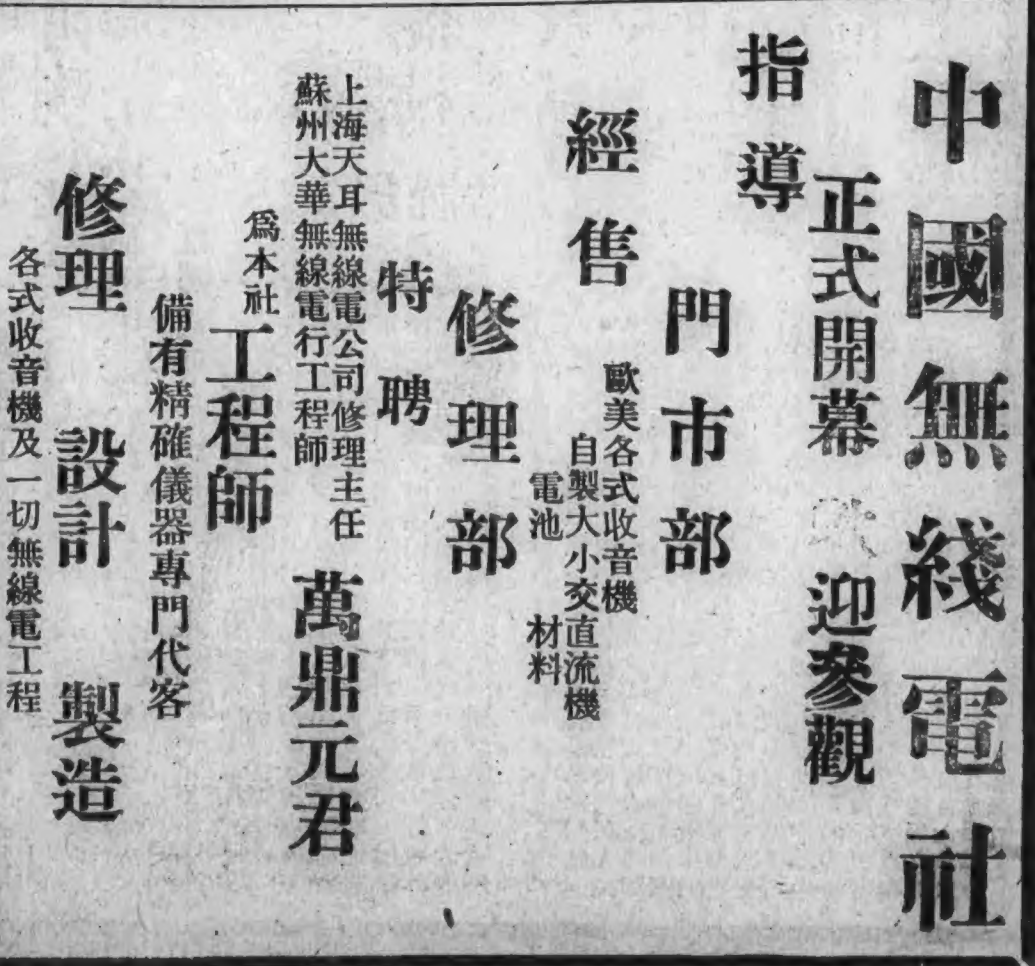 中國無綫電社
正式開幕 迎參觀
指導
門市部
經售
歐美各式收音機
自製大小交直流機
電池 材料
修理部
特聘
上海天耳無線電公司修理主任
蘇州大華無線電行工程師
萬鼎元君
爲本社
工程師
備有精確儀器專門代客
修理 設計 製造
各式收音機及一切無線電工程